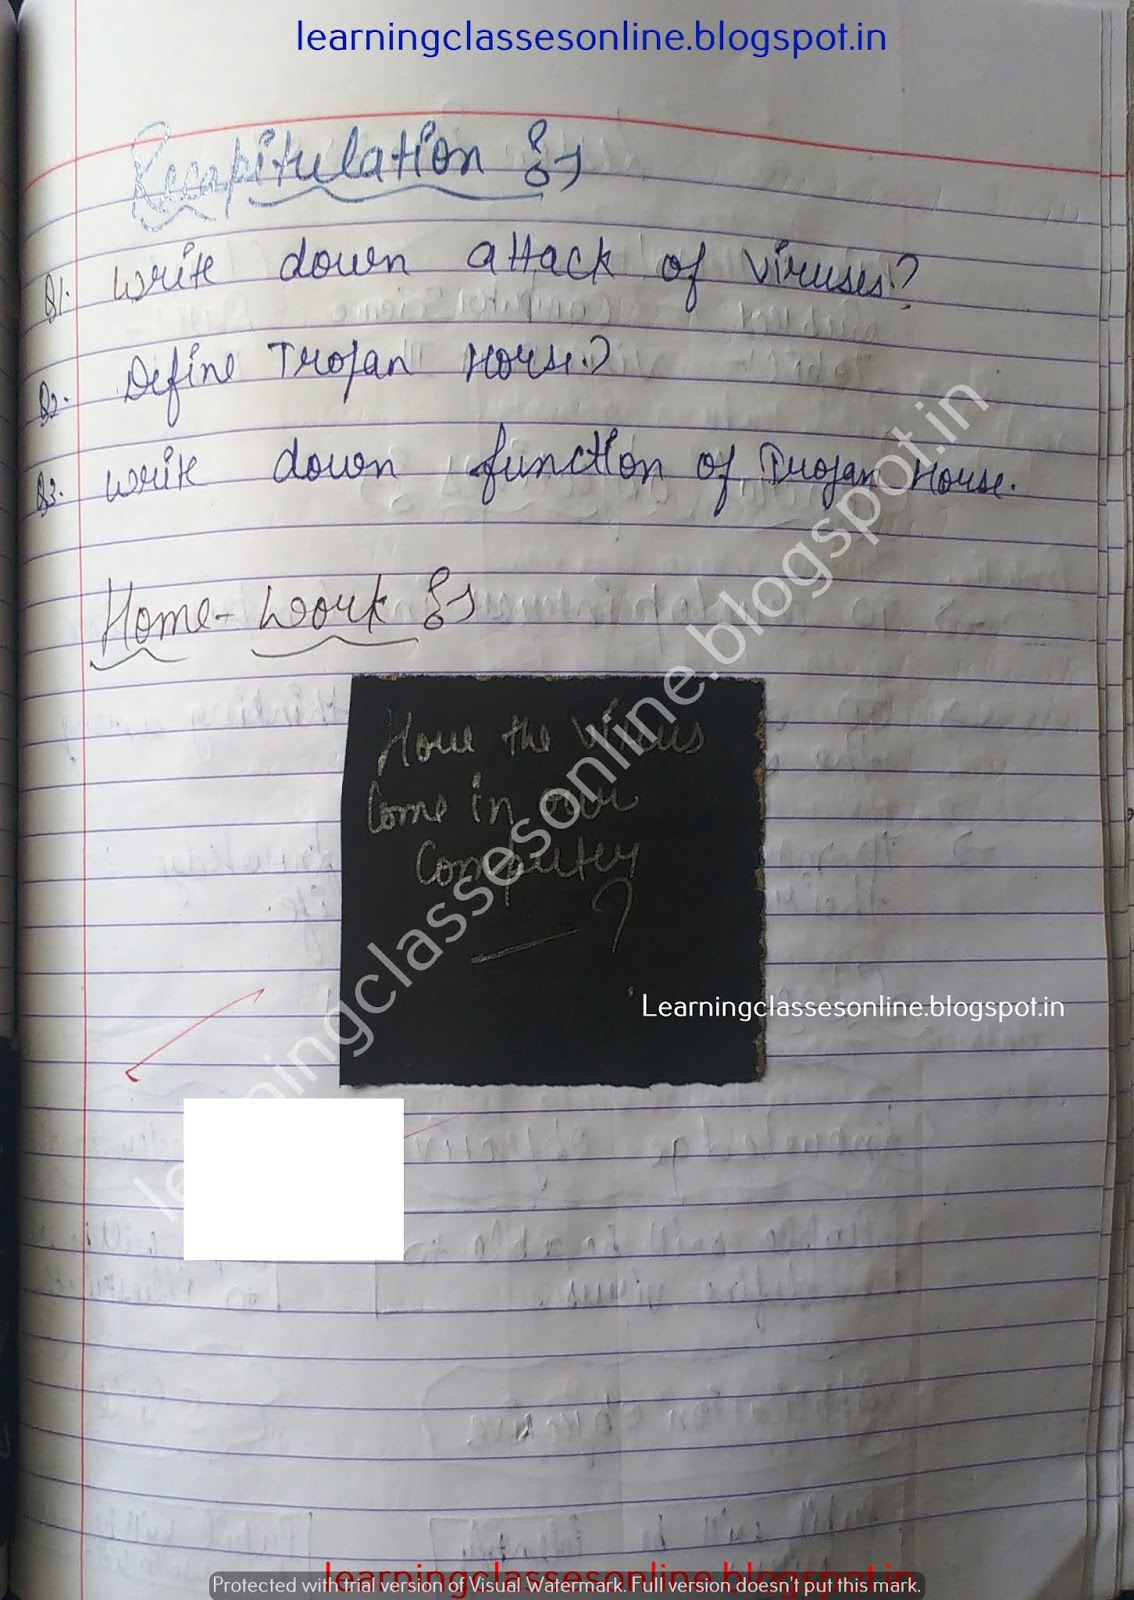 learningclassesonline.blogspot.in
Recapitulation :-
Q1. Write down attack of viruses?
Q2. Define Trojan Horse?
Q3. Write down function of Trojan House.
Home-Work :-
How the Virus
Come in our
Computer
?
learningclassesonline.blogspot.in
Learningclassesonline.blogspot.in
learningclassesonline.blogspot.in
Protected with trial version of Visual Watermark. Full version doesn't put this mark.